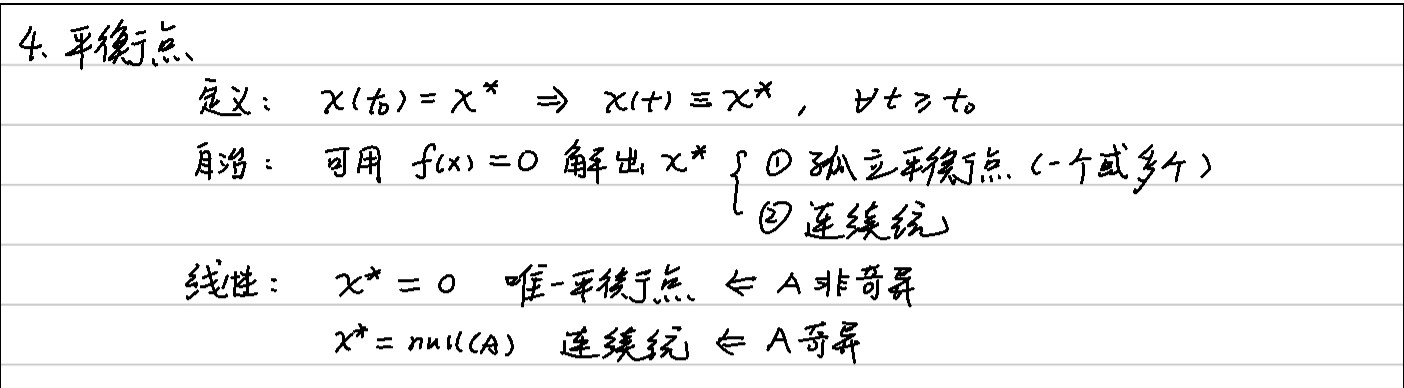 4、平衡点
定义： x(t₀) = x* ⇒ x(t) ≡ x* , ∀t ≥ t₀
自治： 可用 f(x) = 0 解出 x* { ① 孤立平衡点 (一个或多个)
② 连续统
线性： x* = 0 唯一平衡点 ⇐ A 非奇异
x* = null(A) 连续统 ⇐ A 奇异